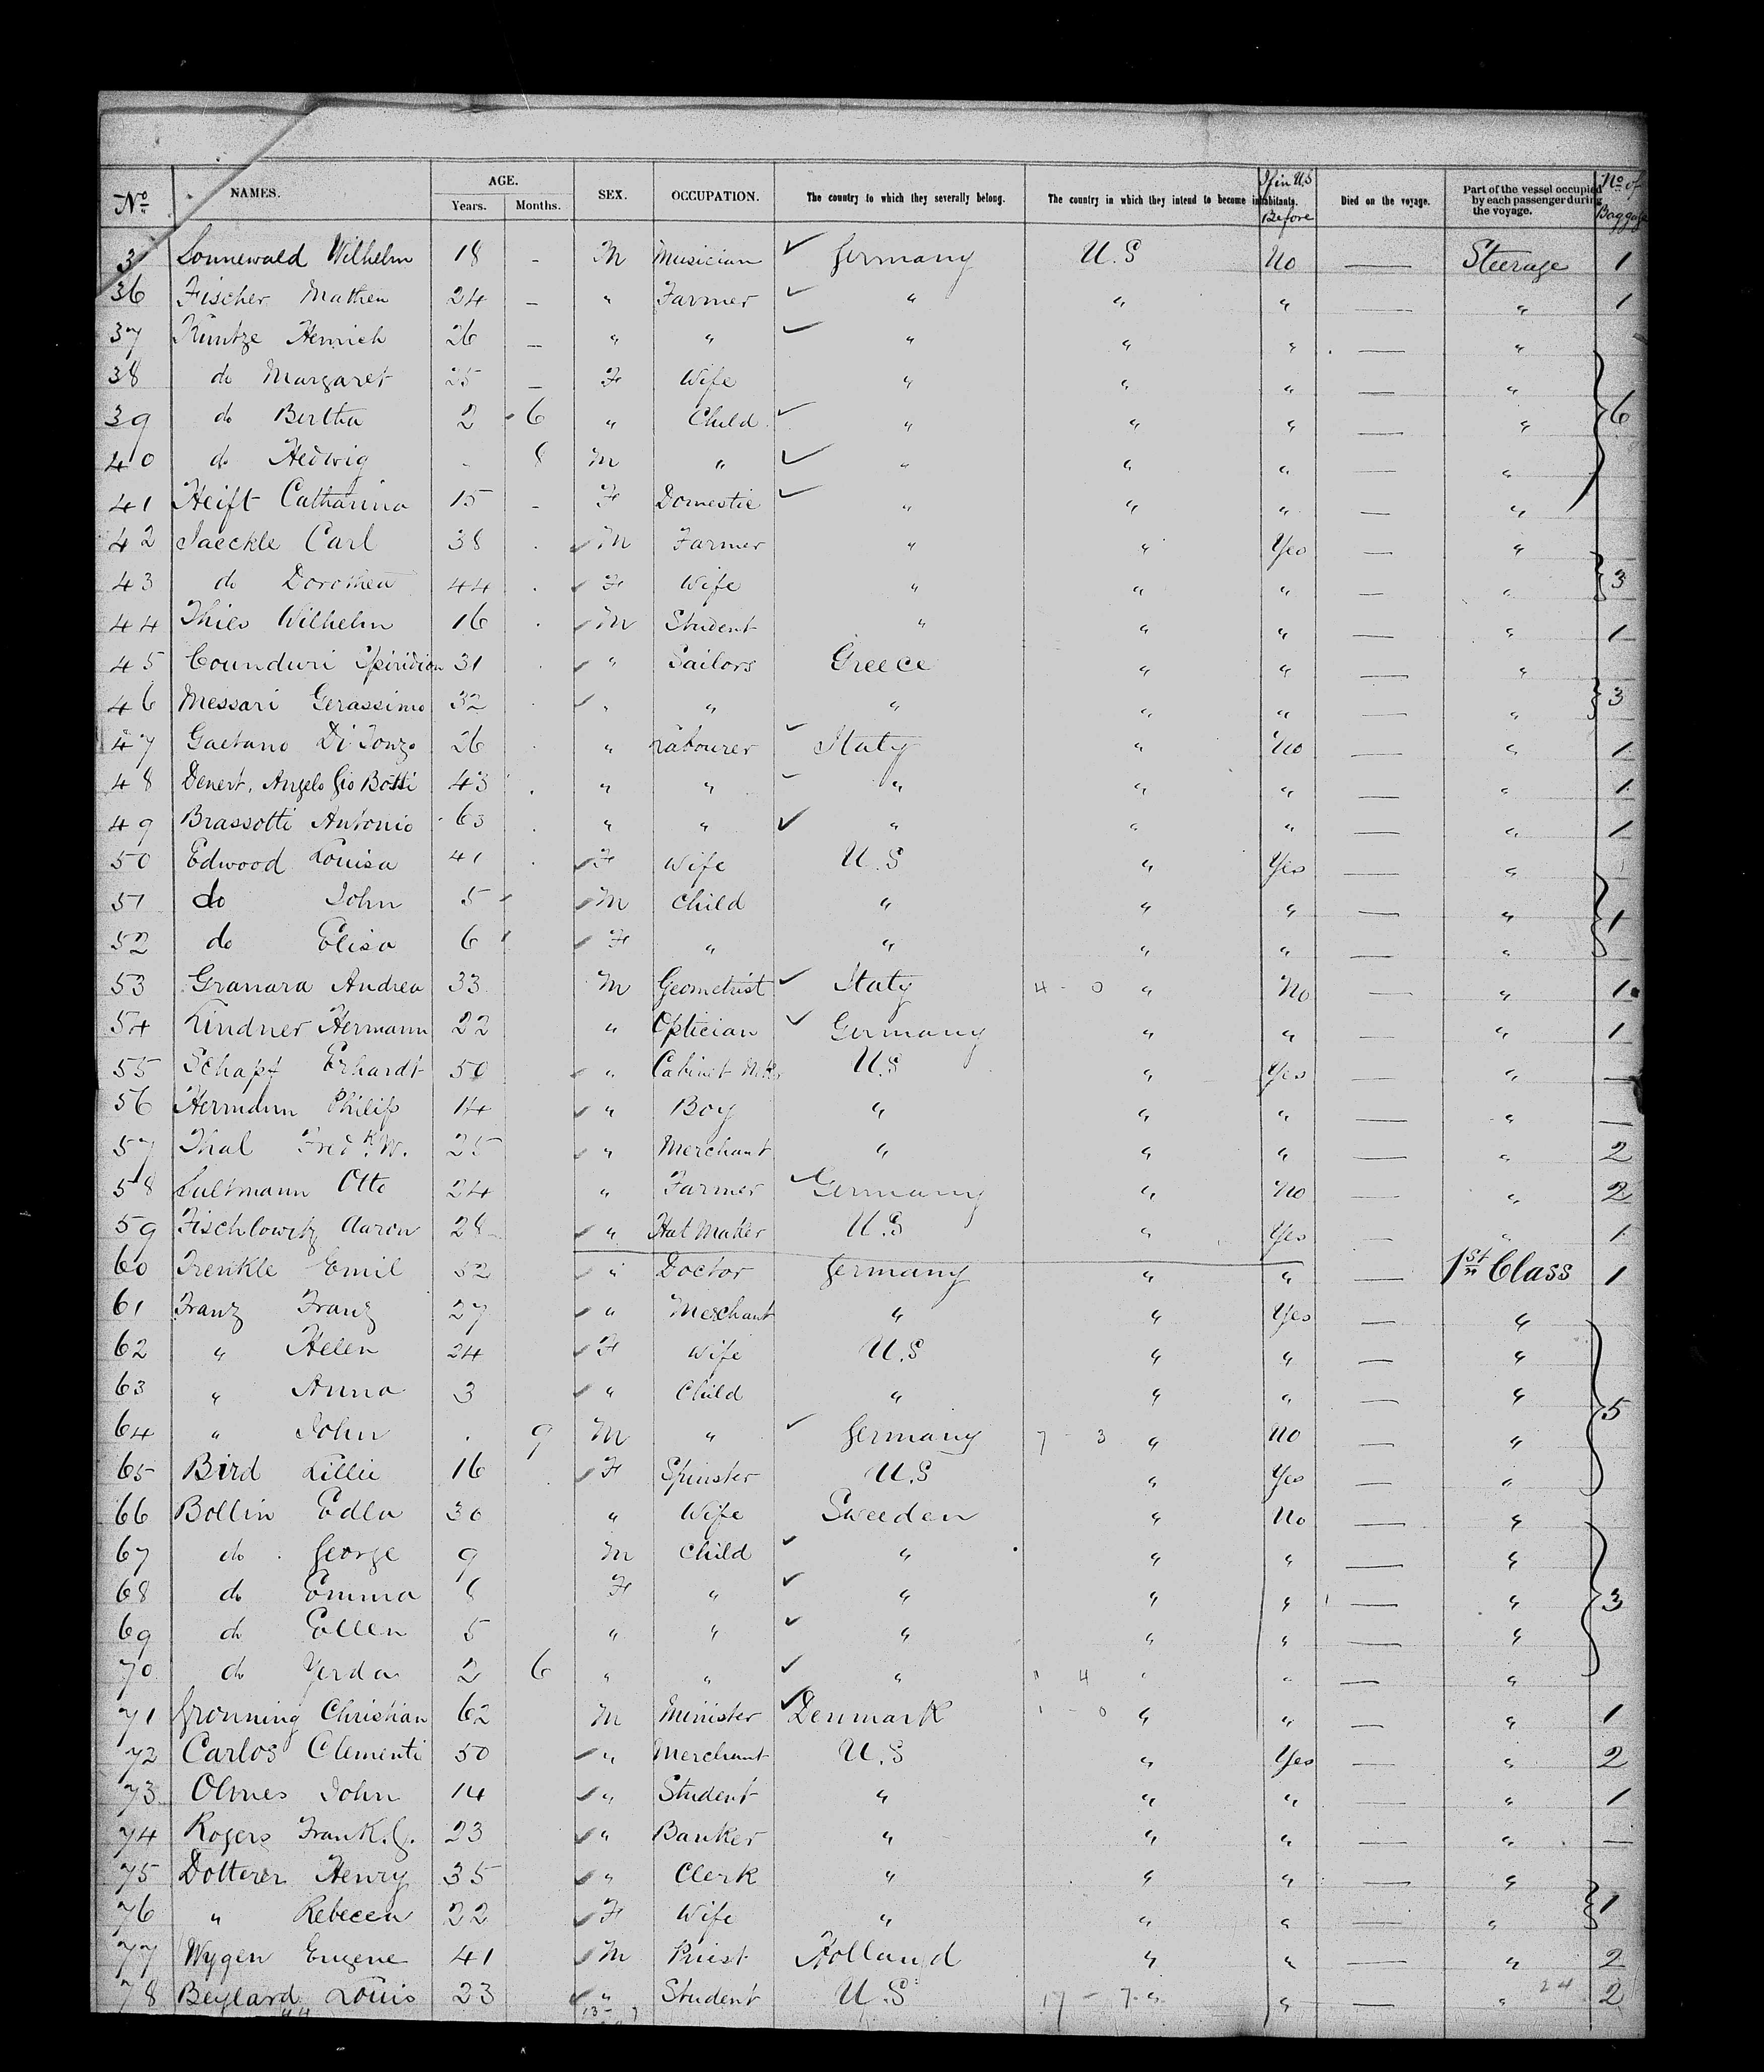 No. NAMES. AGE. Years. Months. SEX. OCCUPATION. The country to which they severally belong. The country in which they intend to become inhabitants. If in U.S Before Died on the voyage. Part of the vessel occupied by each passenger during the voyage. No of Baggage
3 Sonnewald Wilhelm 18 - M Musician ✓ Germany U.S No — Steerage 1
36 Fischer Mathew 24 - " Farmer ✓ " " " — " 1
37 Kuntze Henrich 26 - " " ✓ " " " — "
38 do Margaret 25 - F Wife " " " — "
39 do Bertha 2 6 " Child ✓ " " " — " 6
40 do Hedwig - 8 M " ✓ " " " — "
41 Heift Catharina 15 - F Domestic ✓ " " " — "
42 Jaeckle Carl 38 M Farmer " " Yes — "
43 do Dorothea 44 F Wife " " " — " 3
44 Thies Wilhelm 16 M Student " " " — " 1
45 Counduri Spiridion 31 " Sailors Greece " " — "
46 Messari Gerassimo 32 " " " " " — " 3
47 Gaetano Di Tonzo 26 " Labourer ✓ Italy " No — " 1
48 Denert, Angelo Gio Botti 43 " " ✓ " " " — " 1
49 Brassotti Antonio 63 " " ✓ " " " — " 1
50 Edwood Louisa 41 F Wife U.S " Yes — "
51 do John 5 M Child " " " — " 1
52 do Elisa 6 F " " " " — "
53 Granara Andrea 33 M Geometrist ✓ Italy 4 - 0 " No — " 1
54 Lindner Hermann 22 " Optician ✓ Germany " " — " 1
55 Schapf Erhardt 50 " Cabinet U.S " Yes — " —
56 Hermann Philip 14 " Boy " " " — " —
57 Thal Fredk W. 25 " Merchant " " " — " 2
58 Lultmann Otto 24 " Farmer ✓ Germany " No — " 2
59 Fischlowitz Aaron 28 " Hat Maker U.S " Yes — " 1
60 Trenkle Emil 52 " Doctor Germany " " — 1st Class 1
61 Franz Franz 27 " Merchant " " Yes — "
62 " Helen 24 F Wife U.S " " — "
63 " Anna 3 " Child " " " — "
64 " John . 9 M " ✓ Germany 7 - 3 " No — " 5
65 Bird Lillie 16 F Spinster U.S " Yes — "
66 Bollin Edla 30 " Wife Sweeden " No — "
67 do George 9 M Child ✓ " " " — "
68 do Emma 6 F " ✓ " " " — " 3
69 do Eollen 5 " " ✓ " " " — "
70 do Yerda 2 6 " " ✓ " 4 " " — "
71 Gronning Christian 62 M Minister ✓ Denmark 1 - 0 " " — " 1
72 Carlos Clementi 50 " Merchant U.S " Yes — " 2
73 Olmes John 14 " Student " " " — " 1
74 Rogers Frank. G. 23 " Banker " " " — " —
75 Dotterer Henry 35 " Clerk " " " — "
76 " Rebecca 22 F Wife " " " — " 1
77 Wygen Eugene 41 M Priest Holland " " — " 2
78 Beylard Louis 23 " Student U.S 17 - 7 " " — " 24 2